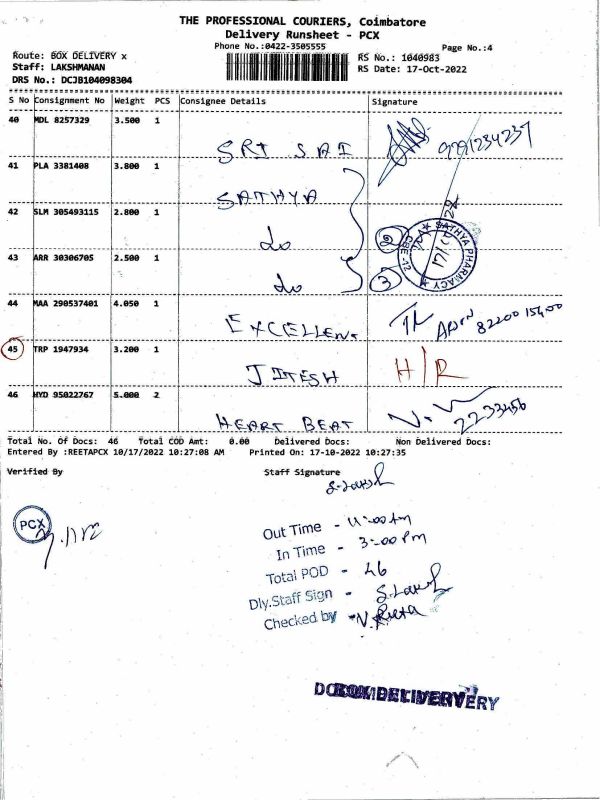 THE PROFESSIONAL COURIERS, Coimbatore
Delivery Runsheet - PCX
Phone No.:0422-3505555
Page No.:4
Route: BOX DELIVERY x
RS No.: 1040983
Staff: LAKSHMANAN
RS Date: 17-Oct-2022
DRS No.: DCJB104098304
S No Consignment No Weight PCS Consignee Details Signature
40 MDL 8257329 3.500 1
SRI SAI
41 PLA 3381408 3.800 1
SATHYA
42 SLM 305493115 2.800 1
do 2
SATHYA PHARMACY CBE-12
43 ARR 30306705 2.500 1
do 3
44 MAA 290537401 4.050 1
EXCELLENT
45 TRP 1947934 3.200 1
JITESH H/R
46 HYD 95022767 5.000 2
HEART BEAT 2233456
Total No. Of Docs: 46 Total COD Amt: 0.00 Delivered Docs: Non Delivered Docs:
Entered By :REETAPCX 10/17/2022 10:27:08 AM Printed On: 17-10-2022 10:27:35
Verified By Staff Signature
PCX
Out Time - 11:00 Am
In Time - 3:00 Pm
Total POD - 46
Dly.Staff Sign -
Checked by - N. Reeta
BOX DELIVERY